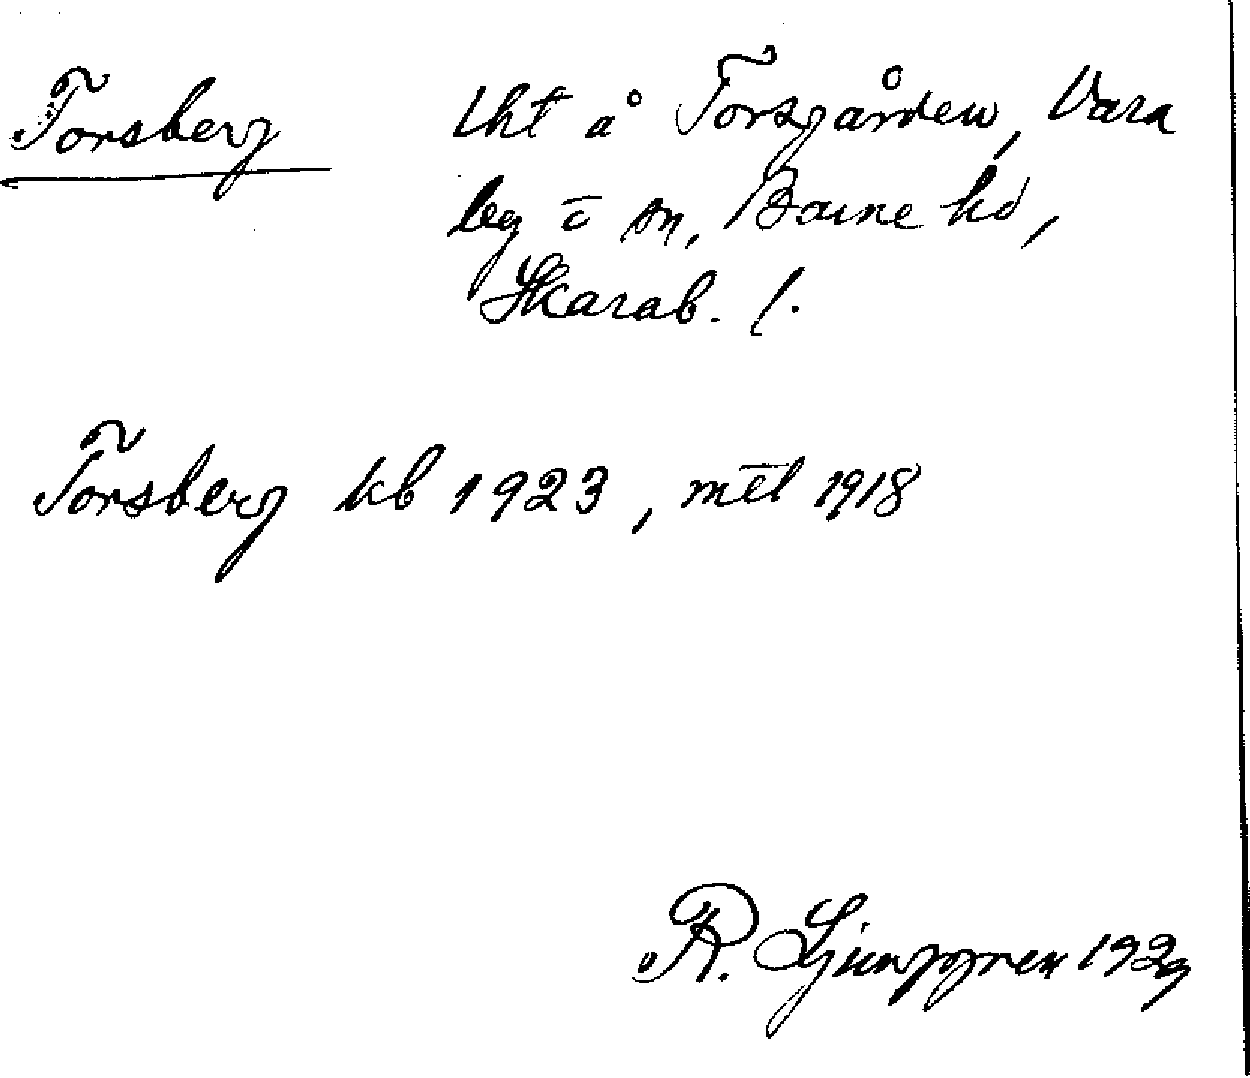 Torsberg lht å Torsgården, Vara
by o sn, Barne hd,
Skarab. l.
Torsberg kb 1923, mtl 1918
R. Ljunggren 1923